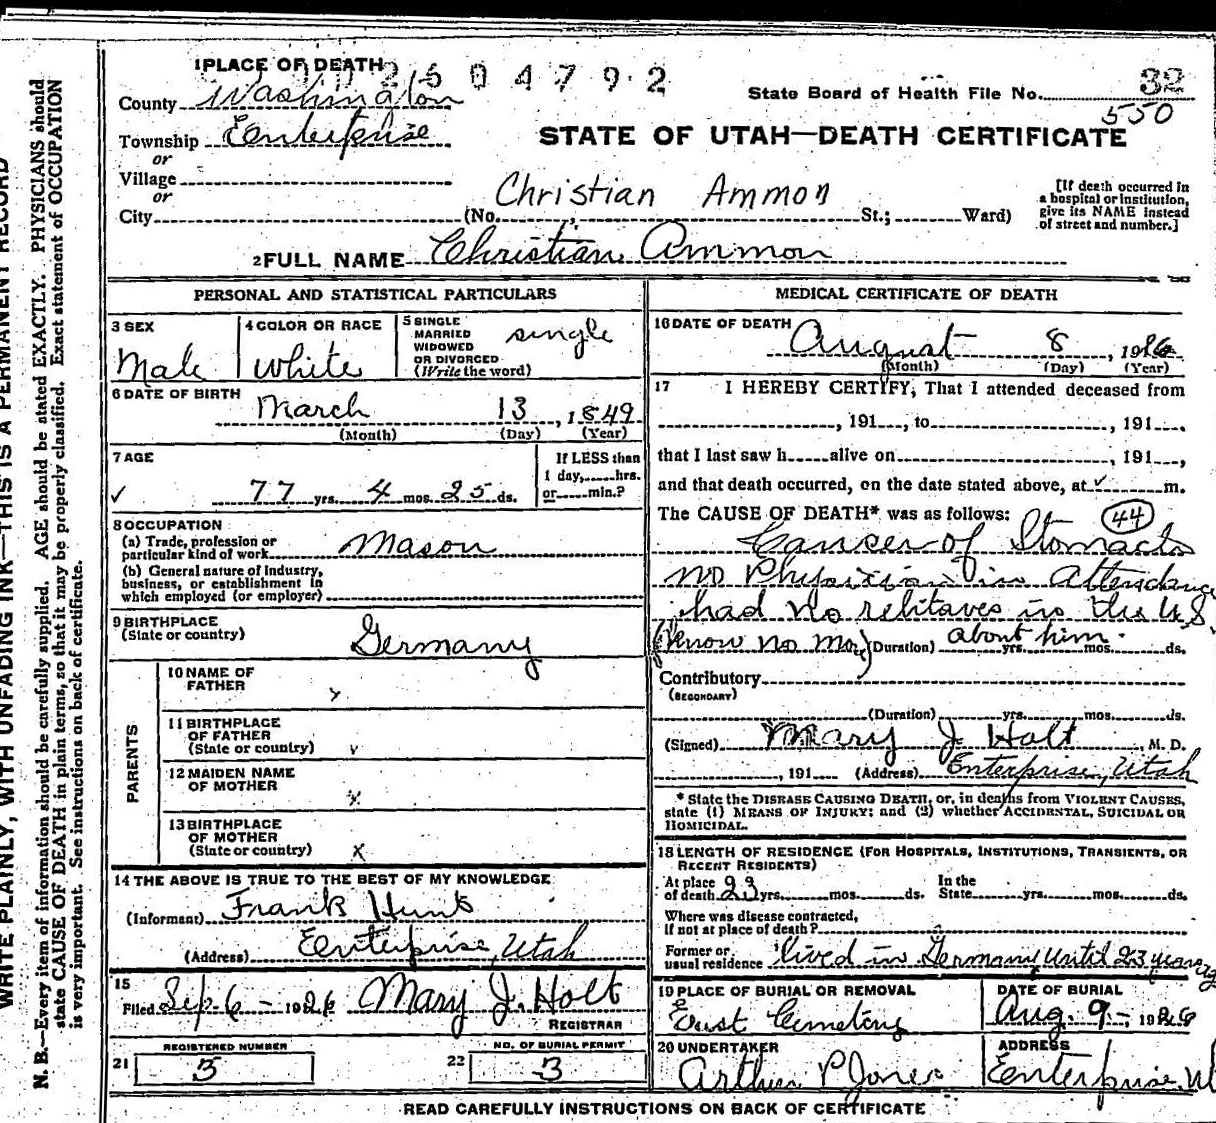 1 PLACE OF DEATH
2 5 0 4 7 9 2
County Washington
State Board of Health File No. 32
550
Township Enterprise
STATE OF UTAH—DEATH CERTIFICATE
or
Village
or
Christian Ammon
City (No. , St.; Ward)
[If death occurred in a hospital or institution, give its NAME instead of street and number.]
2 FULL NAME Christian Ammon
PERSONAL AND STATISTICAL PARTICULARS
3 SEX
Male
4 COLOR OR RACE
White
5 SINGLE MARRIED WIDOWED OR DIVORCED (Write the word)
single
6 DATE OF BIRTH
March 13, 1849
(Month) (Day) (Year)
7 AGE
77 yrs. 4 mos. 25 ds.
If LESS than 1 day, hrs. or min.?
8 OCCUPATION
(a) Trade, profession or particular kind of work Mason
(b) General nature of industry, business, or establishment in which employed (or employer)
9 BIRTHPLACE (State or country)
Germany
PARENTS
10 NAME OF FATHER
11 BIRTHPLACE OF FATHER (State or country)
12 MAIDEN NAME OF MOTHER
13 BIRTHPLACE OF MOTHER (State or country) x
14 THE ABOVE IS TRUE TO THE BEST OF MY KNOWLEDGE
(Informant) Frank Hunt
(Address) Enterprise, Utah
15
Filed Sep. 6 - 1926 Mary J. Holt
REGISTRAR
REGISTERED NUMBER
21 5
NO. OF BURIAL PERMIT
22 3
MEDICAL CERTIFICATE OF DEATH
16 DATE OF DEATH
August 8, 1926
(Month) (Day) (Year)
17 I HEREBY CERTIFY, That I attended deceased from
, 191 , to , 191 ,
that I last saw h alive on , 191 ,
and that death occurred, on the date stated above, at m.
The CAUSE OF DEATH* was as follows: 44
Cancer of Stomach
no Physixian in attendance
had no relitaves in the U.S.
(know no mor) (Duration) about him. yrs. mos. ds.
Contributory
(SECONDARY)
(Duration) yrs. mos. ds.
(Signed) Mary J Holt, M. D.
, 191 (Address) Enterprise, Utah
* State the DISEASE CAUSING DEATH, or, in deaths from VIOLENT CAUSES, state (1) MEANS OF INJURY; and (2) whether ACCIDENTAL, SUICIDAL OR HOMICIDAL.
18 LENGTH OF RESIDENCE (FOR HOSPITALS, INSTITUTIONS, TRANSIENTS, OR RECENT RESIDENTS)
At place of death 23 yrs. mos. ds. In the State yrs. mos. ds.
Where was disease contracted, if not at place of death?
Former or usual residence lived in Germany Until 23 years ago
19 PLACE OF BURIAL OR REMOVAL
Cemetery
DATE OF BURIAL
Aug. 9 - 1926
20 UNDERTAKER
Arthur P Jones
ADDRESS
Enterprise, U
READ CAREFULLY INSTRUCTIONS ON BACK OF CERTIFICATE
WRITE PLAINLY, WITH UNFADING INK—THIS IS A PERMANENT RECORD
N. B.—Every item of information should be carefully supplied. AGE should be stated EXACTLY. PHYSICIANS should
state CAUSE OF DEATH in plain terms, so that it may be properly classified. Exact statement of OCCUPATION
is very important. See instructions on back of certificate.